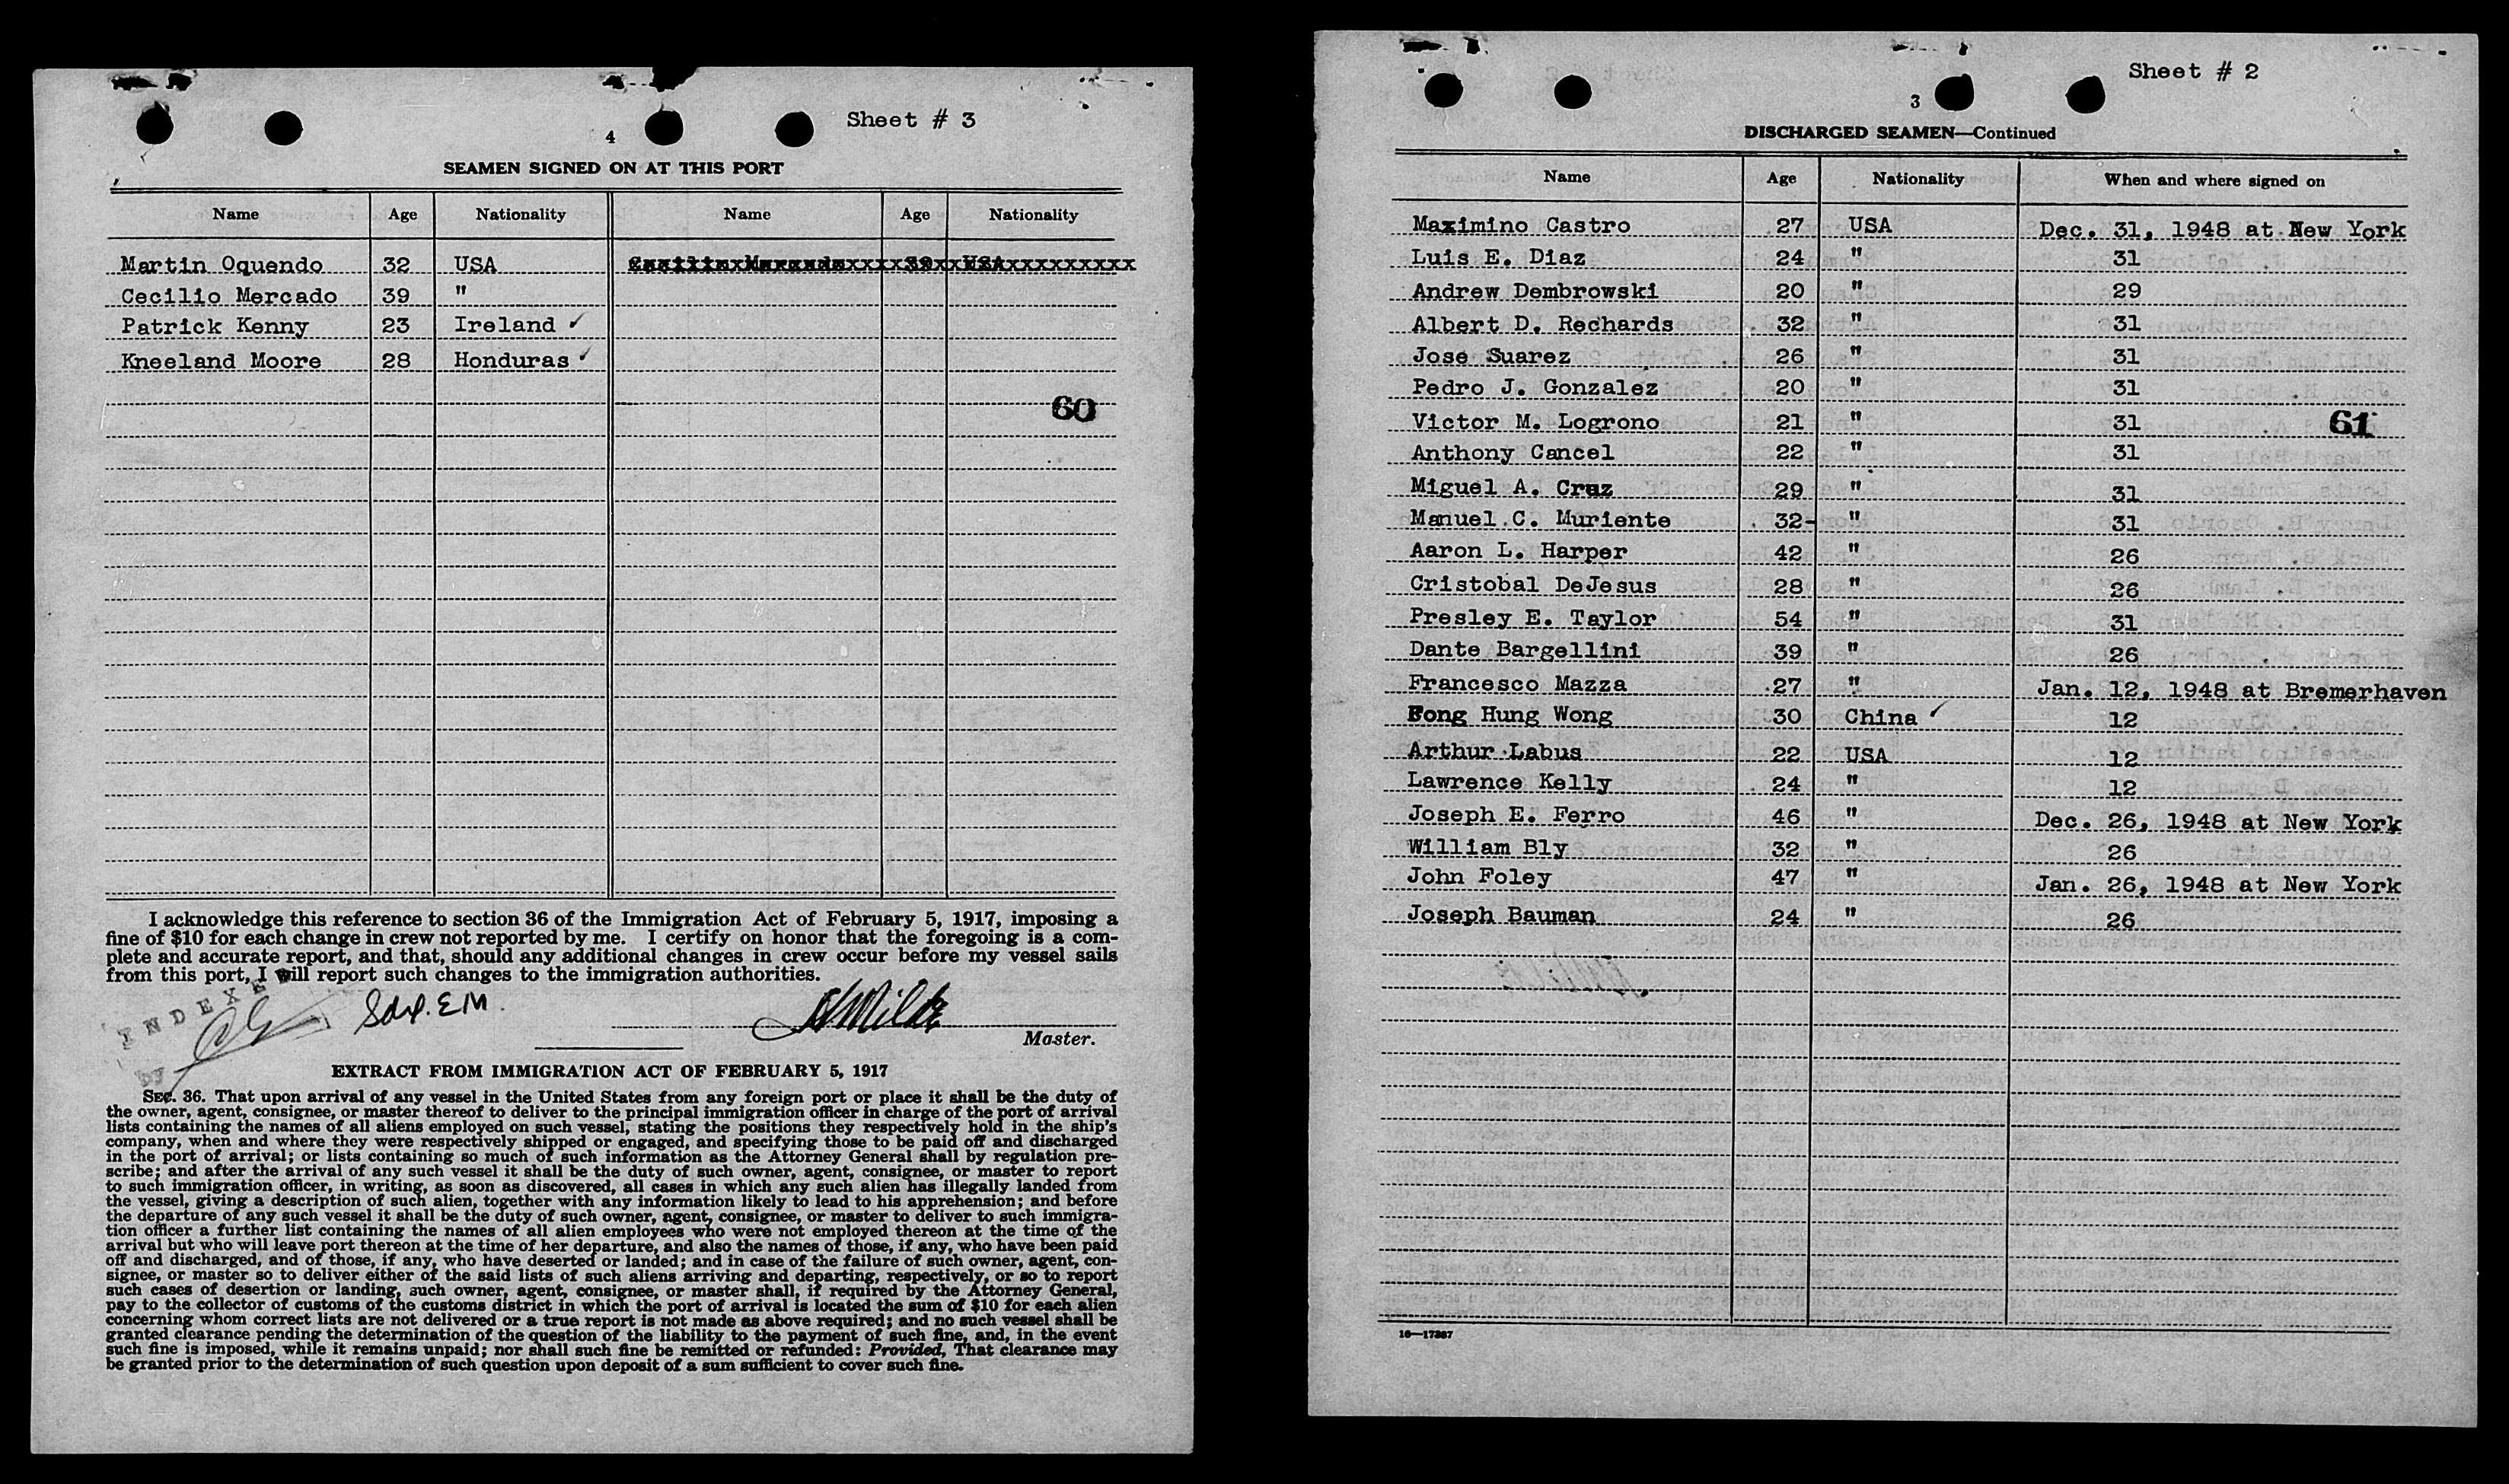 Sheet # 3
4
SEAMEN SIGNED ON AT THIS PORT
Name Age Nationality Name Age Nationality
Martin Oquendo 32 USA
Cecilio Mercado 39 "
Patrick Kenny 23 Ireland ✓
Kneeland Moore 28 Honduras ✓
60
I acknowledge this reference to section 36 of the Immigration Act of February 5, 1917, imposing a
fine of $10 for each change in crew not reported by me. I certify on honor that the foregoing is a com-
plete and accurate report, and that, should any additional changes in crew occur before my vessel sails
from this port, I will report such changes to the immigration authorities.
INDEXED
by
Master.
EXTRACT FROM IMMIGRATION ACT OF FEBRUARY 5, 1917
SEC. 36. That upon arrival of any vessel in the United States from any foreign port or place it shall be the duty of
the owner, agent, consignee, or master thereof to deliver to the principal immigration officer in charge of the port of arrival
lists containing the names of all aliens employed on such vessel, stating the positions they respectively hold in the ship's
company, when and where they were respectively shipped or engaged, and specifying those to be paid off and discharged
in the port of arrival; or lists containing so much of such information as the Attorney General shall by regulation pre-
scribe; and after the arrival of any such vessel it shall be the duty of such owner, agent, consignee, or master to report
to such immigration officer, in writing, as soon as discovered, all cases in which any such alien has illegally landed from
the vessel, giving a description of such alien, together with any information likely to lead to his apprehension; and before
the departure of any such vessel it shall be the duty of such owner, agent, consignee, or master to deliver to such immigra-
tion officer a further list containing the names of all alien employees who were not employed thereon at the time of the
arrival but who will leave port thereon at the time of her departure, and also the names of those, if any, who have been paid
off and discharged, and of those, if any, who have deserted or landed; and in case of the failure of such owner, agent, con-
signee, or master so to deliver either of the said lists of such aliens arriving and departing, respectively, or so to report
such cases of desertion or landing, such owner, agent, consignee, or master shall, if required by the Attorney General,
pay to the collector of customs of the customs district in which the port of arrival is located the sum of $10 for each alien
concerning whom correct lists are not delivered or a true report is not made as above required; and no such vessel shall be
granted clearance pending the determination of the question of the liability to the payment of such fine, and, in the event
such fine is imposed, while it remains unpaid; nor shall such fine be remitted or refunded: Provided, That clearance may
be granted prior to the determination of such question upon deposit of a sum sufficient to cover such fine.
Sheet # 2
3
DISCHARGED SEAMEN—Continued
Name Age Nationality When and where signed on
Maximino Castro 27 USA Dec. 31, 1948 at New York
Luis E. Diaz 24 " 31
Andrew Dembrowski 20 " 29
Albert D. Rechards 32 " 31
Jose Suarez 26 " 31
Pedro J. Gonzalez 20 " 31
Victor M. Logrono 21 " 31
61
Anthony Cancel 22 " 31
Miguel A. Cruz 29 " 31
Manuel C. Muriente 32- " 31
Aaron L. Harper 42 " 26
Cristobal DeJesus 28 " 26
Presley E. Taylor 54 " 31
Dante Bargellini 39 " 26
Francesco Mazza 27 " Jan. 12, 1948 at Bremerhaven
Fong Hung Wong 30 China ✓ 12
Arthur Labus 22 USA 12
Lawrence Kelly 24 " 12
Joseph E. Ferro 46 " Dec. 26, 1948 at New York
William Bly 32 " 26
John Foley 47 " Jan. 26, 1948 at New York
Joseph Bauman 24 " 26
16—17387